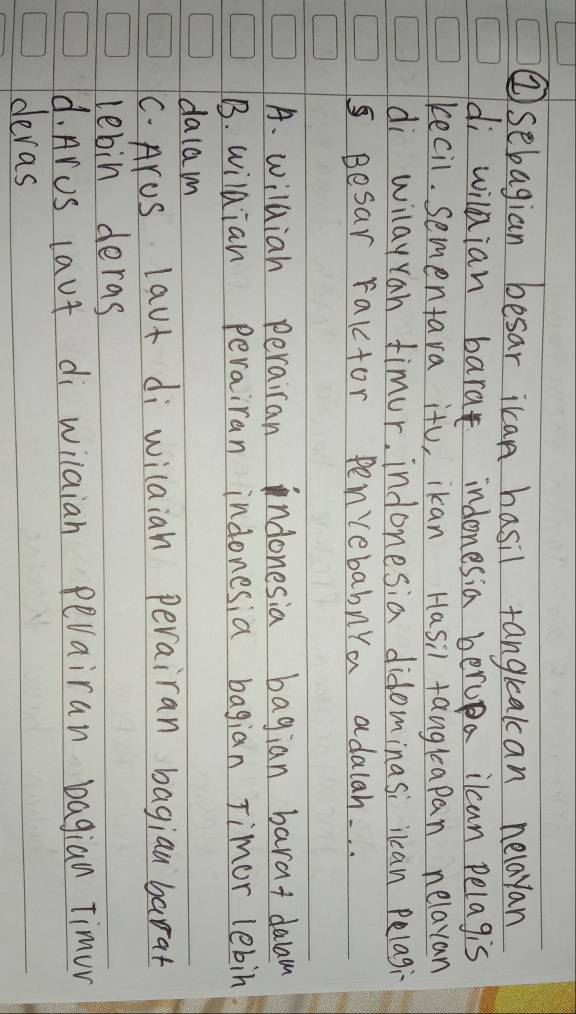 ① Sebagian besar ikan hasil tangkakan nelayan
di wilaian barat indonesia berupa ikan Pelagis
kecil. Sementara itu, ikan Hasil tangkapan nelayan
di wilayyah timur. indonesia didominasi ikan Pelagi
s Besar Faktor Penyebabnya adalah...
A. wilaiah Perairan indonesia bagian barat dalam
B. wilaian Perairan indonesia bagian Timur lebih
dalam
C. Arus laut di wilaiah Perairan bagian barat
lebih deras
d. Arus laut di wilaiah Perairan bagian Timur
deras